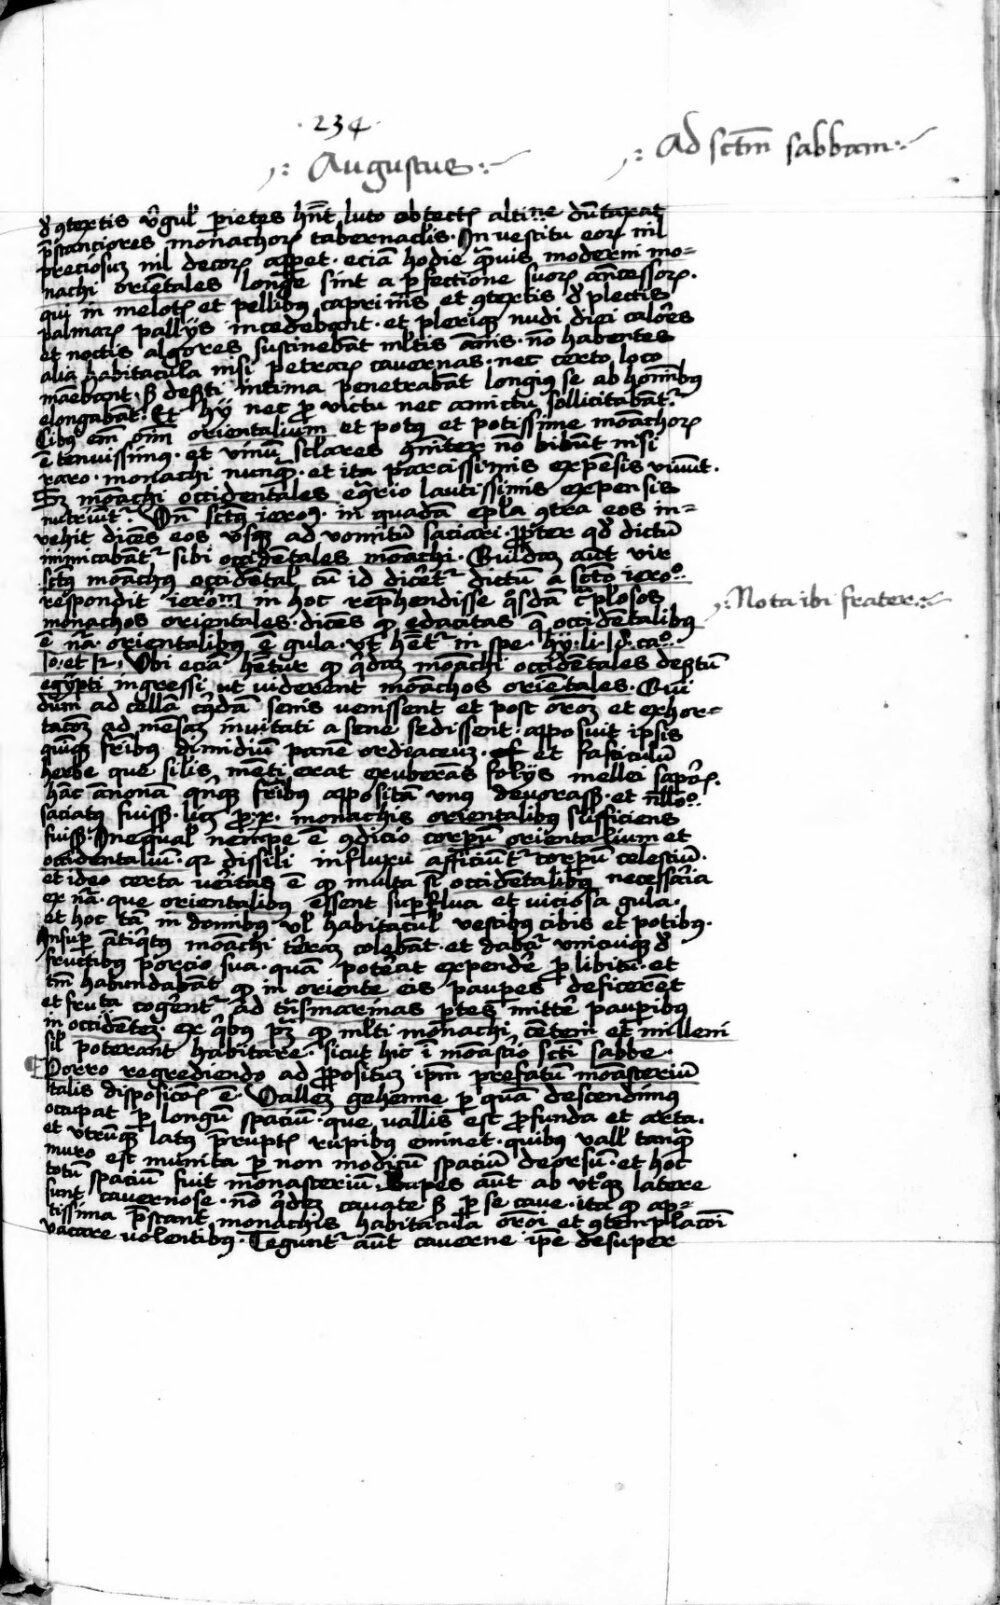 · 234 ·
Augustus
Ad sctm sabbam
p̄stanciores monachoꝝ tabernaclis · In vestitu eoꝝ nil
preciosuꝫ nil decoꝝ apꝑet · eciā hodie q̄uis moderni mo=
nachi oriētales longe sint a ꝑfectione suoꝝ ancessoꝝ ·
qui in melotꝭ et pellibꝰ caprinis et ꝯtextis d̄ plectis
palmaꝝ pallijs incedebant · et pleriqꝫ nudi diei calōres
et noctis algores sustinebāt mltis ānis · nō habentes
alia habitacula nisi petraꝝ cavernas · nec certo loco
manebant · ẜ deẜti intima penetrabāt longiꝰ se ab hoīnibꝰ
elongabāt · Et hij nec ꝓ victu nec amictu sollicitabāt᷑
Cibus em̄ oīm orientalium et potꝰ et potissime moāchoꝝ
ē tenuissimꝰ · et vinū sclares ꝯniter nō bibūt nisi
raro · monachi nunqꝫ · et ita parcissimis expēsis vivūt ·
Sꝫ moāchi occidentales eꝯrio lautissimis expensis
nutriūt᷑ · Vn̄ sctꝰ ieroꝰ in quadā epl̄a ꝯtra eos in=
vehit dicēs eos vsqꝫ ad vomitū saciari · ꝓpter qd̄ dictū
inimicabāt᷑ sibi occidētales moāchi · Quidaꝫ aūt vir
sctꝰ moāchꝰ occidētal᷑ cū id dicēt᷑ dictū a sctō iero°
respondit ierōm in hoc rep̄hendisse q̄sdā
monachos orientales · dicēs qꝫ edacitas q̄ occidētalibꝰ
ē nā · orientalibꝰ ē gula · vt hēt᷑ in spe · hy · li · ca°
10 · et 12 · Vbi eciā hētur qꝫ q̄daꝫ moāchi occidētales deẜtū
egipti ingressi ut viderent moāchos oriētales · Qui
dum ad cellā cuidā senis venissent et post orōꝫ et exhor=
tacōꝫ ad mēsaꝫ invitati a sene sedissent · apposuit ipsis
quinqꝫ fribꝰ dimidiū panē ordeaceuꝫ · et fasciculū
herbe que silis mēti erat exuberās folijs mellei saporꝭ
hāc annonā quīqꝫ fribꝰ appositā vnꝰ devorasꝫ · et nllo°
saciatꝰ fuisꝫ · licꝫ ꝓ · x · monachis orientalibꝰ sufficiens
fuisꝫ · Inequal᷑ nempe ē ꝯdicio corpꝝ orientalium et
occidentaliū · qꝛ dissili influxu afficiūt᷑ corpꝝ celestiū ·
et ideo certa vēritas ē qꝫ multa sūt occidētalibꝰ necessāria
ex nā · que orientalibꝰ essent suꝑflua et viciosa gula ·
et hoc tā in domibꝰ vl᷑ habitacul᷑ vestibꝰ cibis et potibꝰ ·
Insuꝑ ātiq̄tꝰ moāchi terraꝫ colebāt · et dabat᷑ vnicuiqꝫ d̄
fructibꝰ porcio sua · quā poterat expendē ꝓ libitu · et
tm̄ habundabāt qꝫ in oriente eis pauꝑes deficerēt
et fruta cogerent᷑ ad tnsmarinas ꝑtes mittē pauꝑibꝰ
in occidēteꝫ · ex q̄bꝰ pꝫ qꝫ mlti monachi cētem et milleni
sil᷑ poterant habitare · sicut hic ī moastio scti sabbe ·
Porro regrediendo ad ꝓpositū ipm prefatū moasteriū
talis disposicōis ē · Valleꝫ gehenne ꝑ quā descendimꝰ
occupat ꝑ longū spaciū · que vallis est ꝓfunda et arta ·
et vtrūqꝫ latꝰ p̄ruptꝭ rupibꝰ eminet · quibꝰ vall᷑ tanqꝫ
muro est munita ꝑ non modicū spaciū deorsū · et hoc
totū spaciū fuit monasteriū · Rupes aūt ab vtꝫqꝫ latere
sunt cavernose · nō q̄daꝫ cavate ẜ ꝑ se cave · ita qꝫ ap=
tissima p̄stant monachis habitacula orōi et ꝯtemplacōi
vacare volentibꝰ · Tegunt᷑ aūt caverne ipe desuper
Nota ibi frater